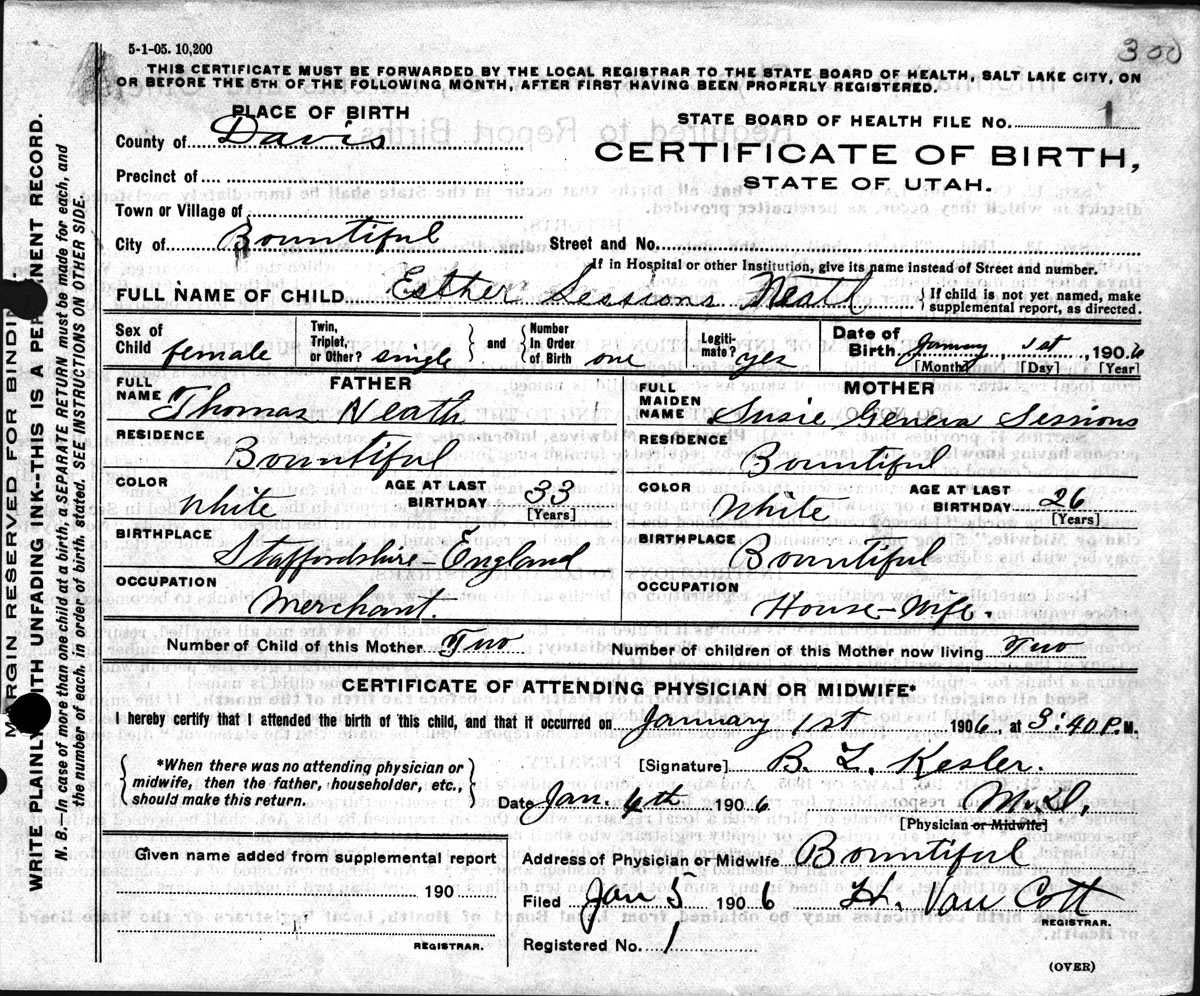 5-1-05. 10,200
300
THIS CERTIFICATE MUST BE FORWARDED BY THE LOCAL REGISTRAR TO THE STATE BOARD OF HEALTH, SALT LAKE CITY, ON
OR BEFORE THE 5TH OF THE FOLLOWING MONTH, AFTER FIRST HAVING BEEN PROPERLY REGISTERED.
PLACE OF BIRTH
STATE BOARD OF HEALTH FILE NO. 1
County of Davis
CERTIFICATE OF BIRTH,
Precinct of
STATE OF UTAH.
Town or Village of
City of Bountiful Street and No.
If in Hospital or other Institution, give its name instead of Street and number.
FULL NAME OF CHILD Esther Sessions Neath { If child is not yet named, make
supplemental report, as directed.
Sex of
Child female
Twin,
Triplet,
or Other? single } and { Number
In Order
of Birth one
Legiti-
mate? yes
Date of
Birth January 1st, 1906
[Month] [Day] [Year]
FATHER
FULL
NAME Thomas Neath
RESIDENCE
Bountiful
COLOR
White
AGE AT LAST
BIRTHDAY 33
[Years]
BIRTHPLACE
Staffordshire - England
OCCUPATION
Merchant.
MOTHER
FULL
MAIDEN
NAME Susie Geneva Sessions
RESIDENCE
Bountiful
COLOR
White
AGE AT LAST
BIRTHDAY 26
[Years]
BIRTHPLACE
Bountiful
OCCUPATION
House-Wife.
Number of Child of this Mother Two
Number of children of this Mother now living Two
CERTIFICATE OF ATTENDING PHYSICIAN OR MIDWIFE*
I hereby certify that I attended the birth of this child, and that it occurred on January 1st 1906, at 3:40 P.M.
{ *When there was no attending physician or
midwife, then the father, householder, etc.,
should make this return. }
[Signature] B. L. Kesler.
Date Jan. 4th 1906 M.D.
[Physician or Midwife]
Given name added from supplemental report
190
REGISTRAR.
Address of Physician or Midwife Bountiful
Filed Jan 5 1906 H. Van Cott
REGISTRAR.
Registered No. 1
(OVER)
MARGIN RESERVED FOR BINDING.
WRITE PLAINLY WITH UNFADING INK--THIS IS A PERMANENT RECORD.
N. B.—In case of more than one child at a birth, a SEPARATE RETURN must be made for each, and
the number of each, in order of birth, stated. SEE INSTRUCTIONS ON OTHER SIDE.